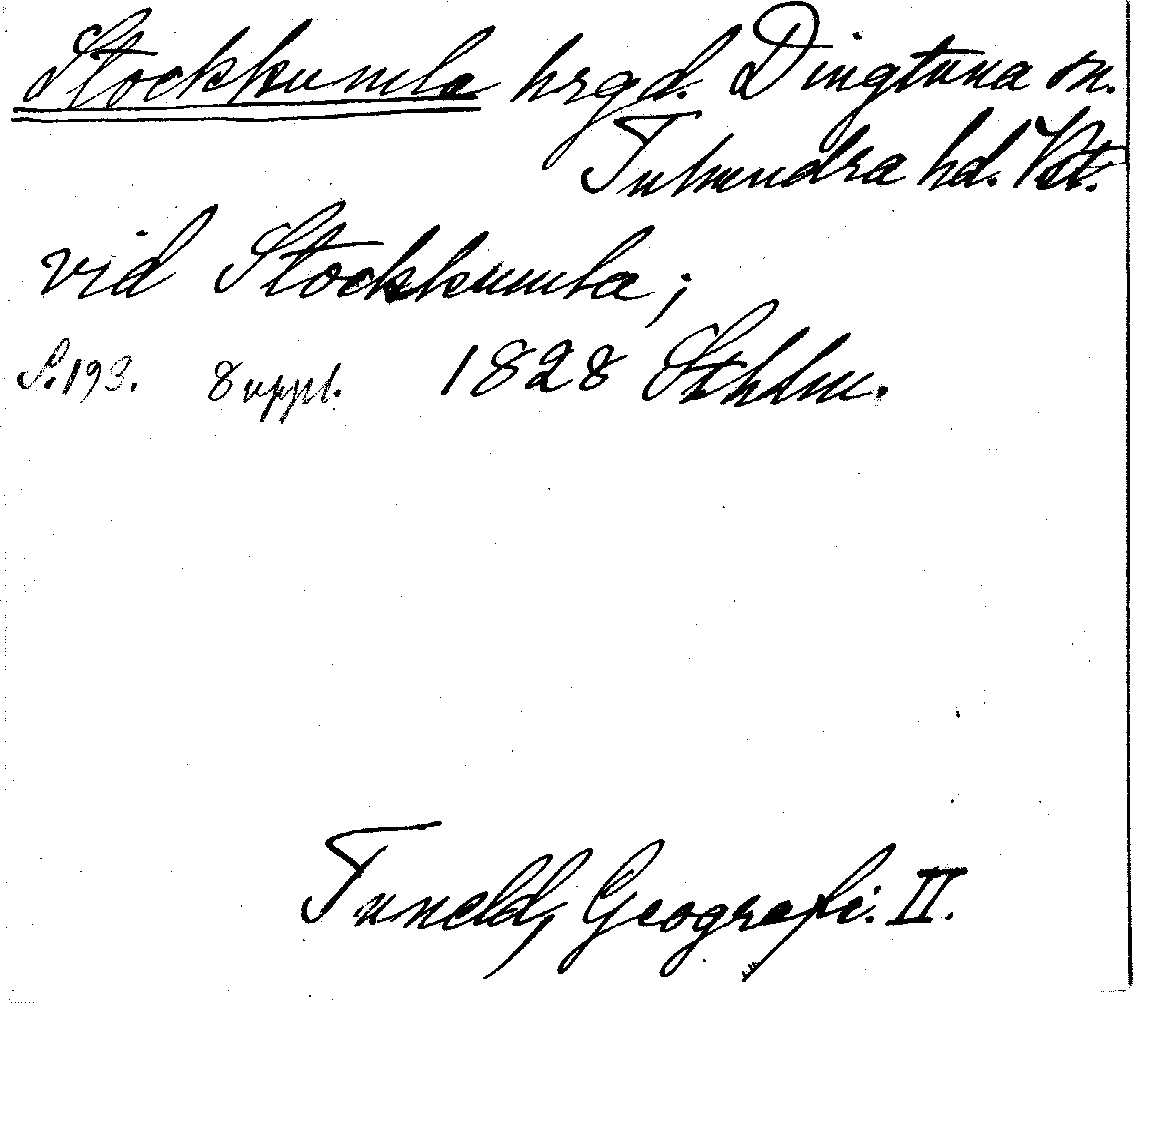 Stockkumla hrgd. Dingtuna sn.
Tuhundra hd. Vstm.
vid Stockkumla;
S. 193. 8 uppl. 1828 Sthlm.
Tuneld, Geografi. II.